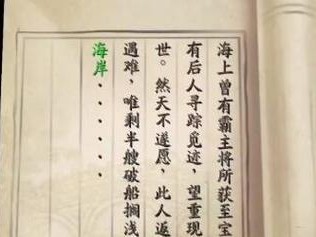 海上曾有霸主将所获至宝
有后人寻踪觅迹，望重现
世。然天不遂愿，此人返
遇难，唯剩半艘破船搁浅
海岸······